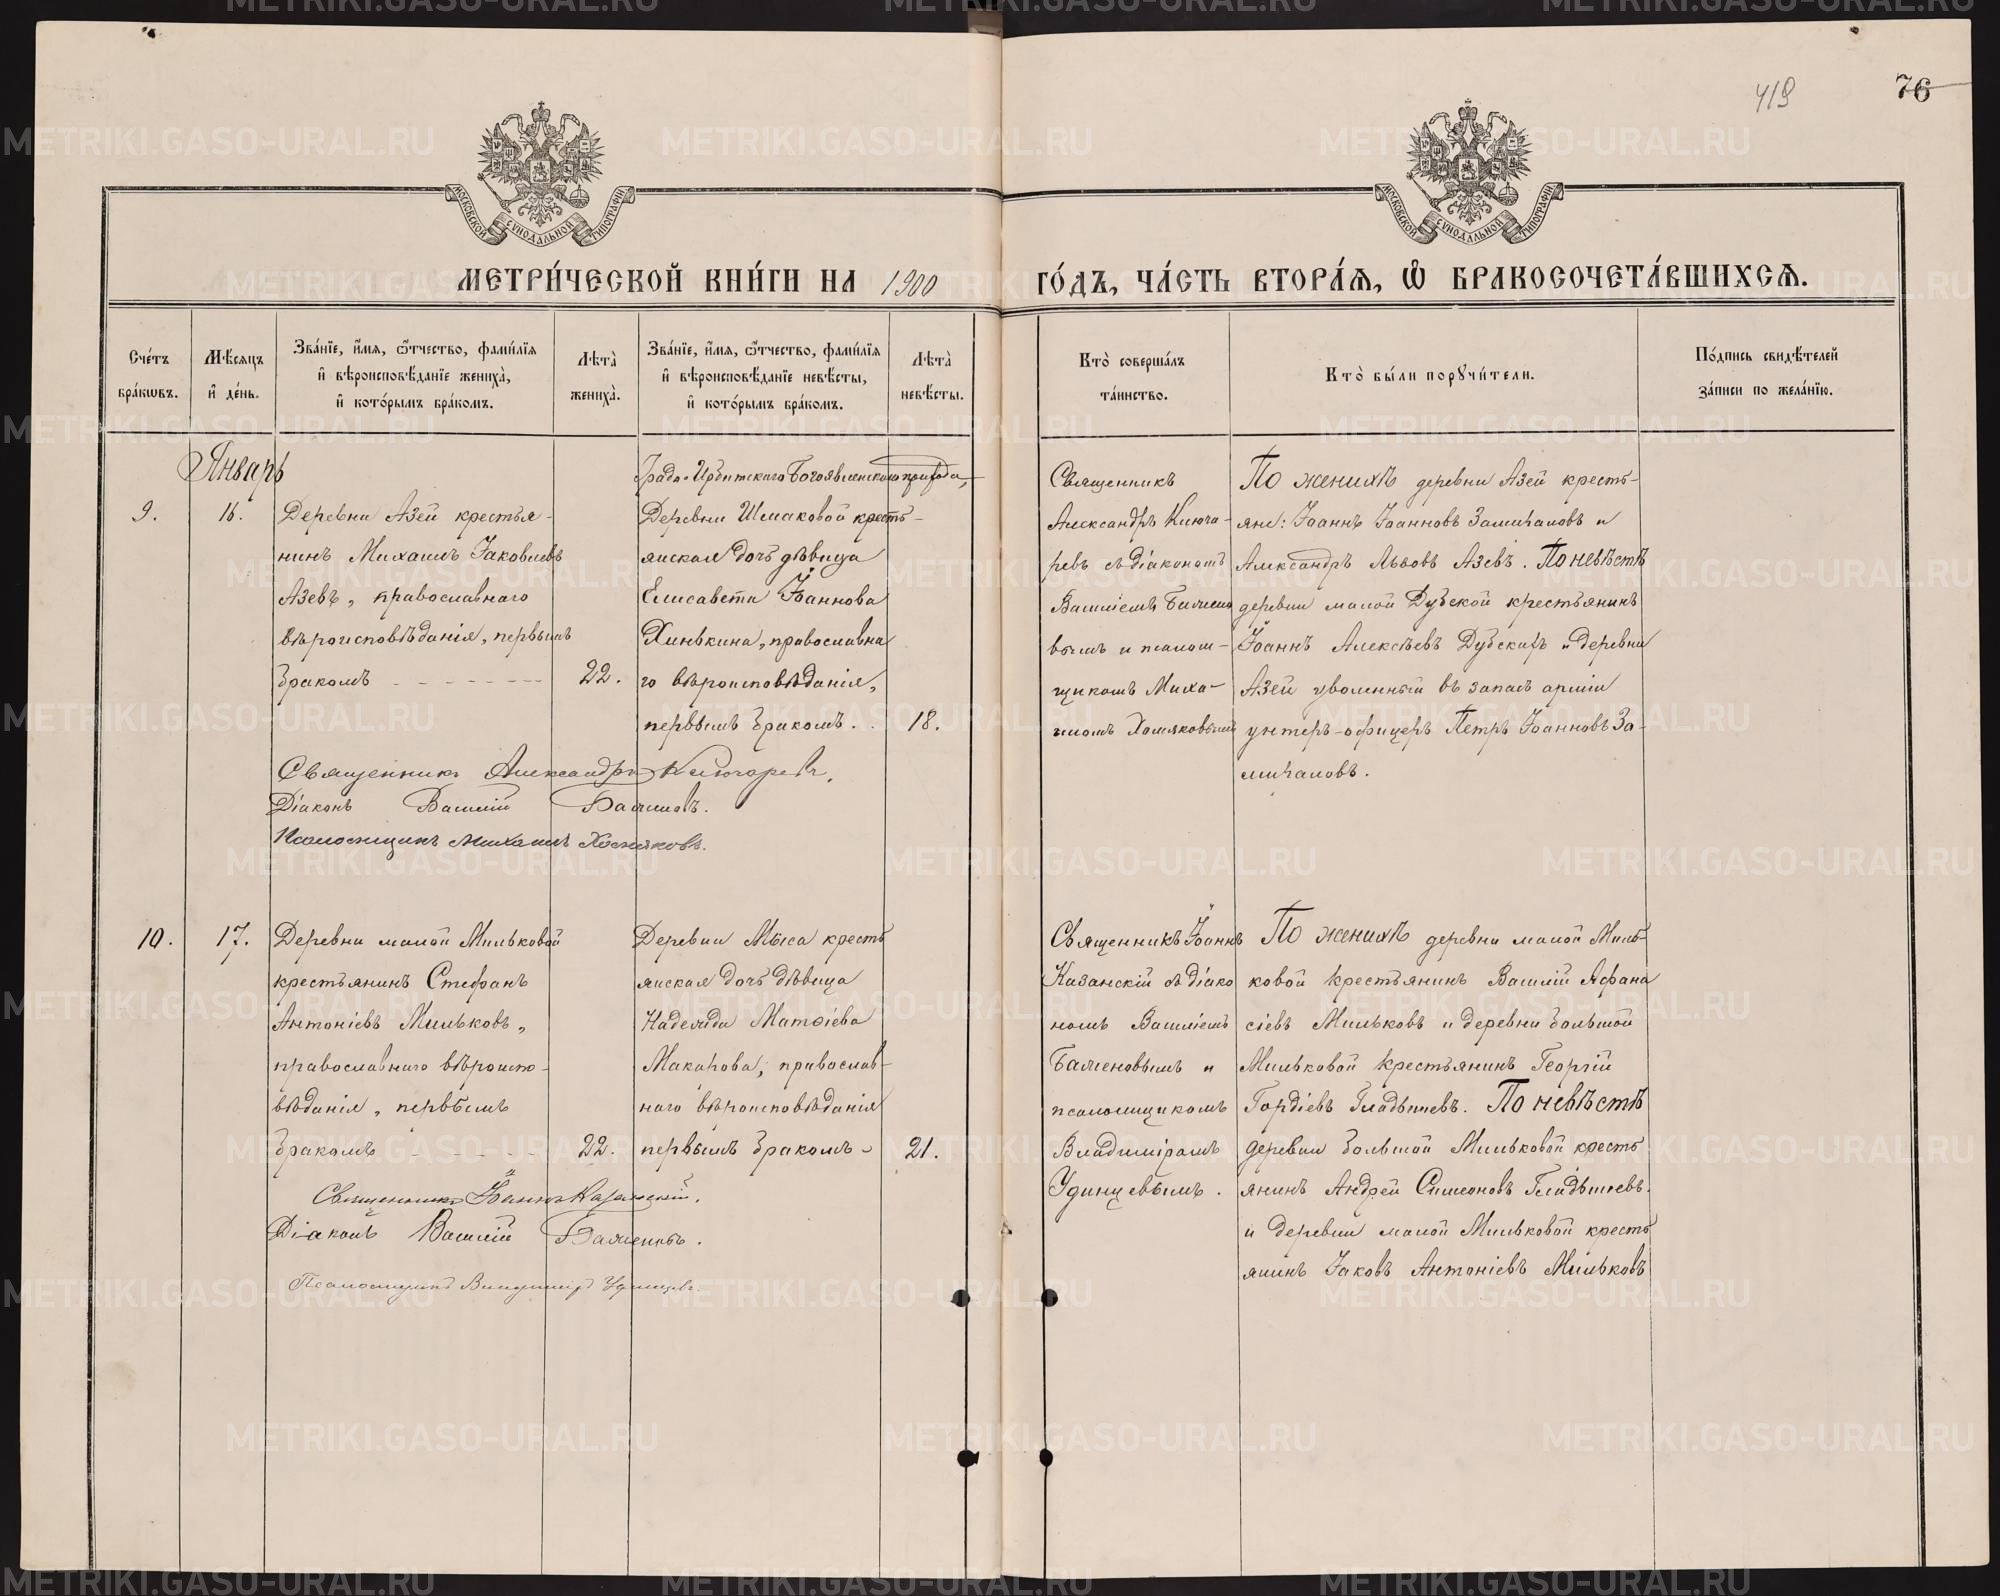 419
76
МОСКОВСКОЙ СѴНОДАЛЬНОЙ ТИПОГРАФІИ
МОСКОВСКОЙ СѴНОДАЛЬНОЙ ТИПОГРАФІИ
МЕТРИ́ЧЕСКОЙ КНИ́ГИ НА 1900
ГО́ДЪ, ЧА́СТЬ ВТОРА́Ѧ, Ѽ БРАКОСОЧЕТА́ВШИХСѦ.
Сче́тъ
бра́кѡвъ.
Мѣ́сѧцъ
и҆ де́нь.
Зва́нїе, и҆́мѧ, ѻ҆́тчество, фами́лїѧ
и҆ вѣроисповѣ́данїе жениха̀,
и҆ кото́рымъ бра́комъ.
Лѣта̀
жениха̀.
Зва́нїе, и҆́мѧ, ѻ҆́тчество, фами́лїѧ
и҆ вѣроисповѣ́данїе невѣ́сты,
и҆ кото́рымъ бра́комъ.
Лѣта̀
невѣ́сты.
Кто̀ соверша́лъ
та́инство.
Кто̀ бы́ли порꙋчи́тели.
По́дпись свидѣ́телей
за́писи по жела́нїю.
Январь
9.
16.
Деревни Азей крестья-
нинъ Михаилъ Іаковлевъ
Азевъ, православнаго
вѣроисповѣданія, первымъ
бракомъ
22.
Градо-Ирбитскаго Богоявленскаго прихода,
Деревни Шмаковой кресть-
янская дочь дѣвица
Елисавета Іоаннова
Хинькина, православна
го вѣроисповѣданія,
первымъ бракомъ.
18.
Священникъ
Александръ Ключа-
ревъ съ діакономъ
Василіемъ
вымъ и псалом-
щикомъ Миха-
иломъ Хомяковымъ
По женихѣ деревни Азей кресть-
яне: Іоаннъ Іоанновъ и
Александръ Львовъ Азевъ. По невѣстѣ
деревни малой Дубской крестьянинъ
Іоаннъ Алексѣевъ Дубскихъ и деревни
Азей уволенный въ запасъ арміи
унтеръ-офицеръ Петръ Іоанновъ
Священникъ Александръ Ключаревъ.
Діаконъ Василій
Псаломщикъ Михаилъ Хомяковъ.
10.
17.
Деревни малой Мильковой
крестьянинъ Стефанъ
Антоніевъ Мильковъ,
православнаго вѣроиспо-
вѣданія, первымъ
бракомъ
22.
Деревни Мыса кресть
янская дочь дѣвица
Надежда Матѳіева
Макарова, православ-
наго вѣроисповѣданія
первымъ бракомъ-
21.
Священникъ Іоаннъ
Казанскій съ діако
номъ Василіемъ
Баженовымъ и
псаломщикомъ
Владиміромъ
Удинцевымъ.
По женихѣ деревни малой Миль-
ковой крестьянинъ Василій Афана
сіевъ Мильковъ и деревни большой
Мильковой крестьянинъ Георгій
Гордіевъ Гладышевъ. По невѣстѣ
деревни большой Мильковой кресть
янинъ Андрей Симеоновъ Гладышевъ.
и деревни малой Мильковой кресть
янинъ Іаковъ Антоніевъ Мильковъ
Священникъ Іоаннъ Казанскій.
Діаконъ Василій Баженовъ.
Псаломщикъ Владиміръ Удинцевъ.
METRIKI.GASO-URAL.RU